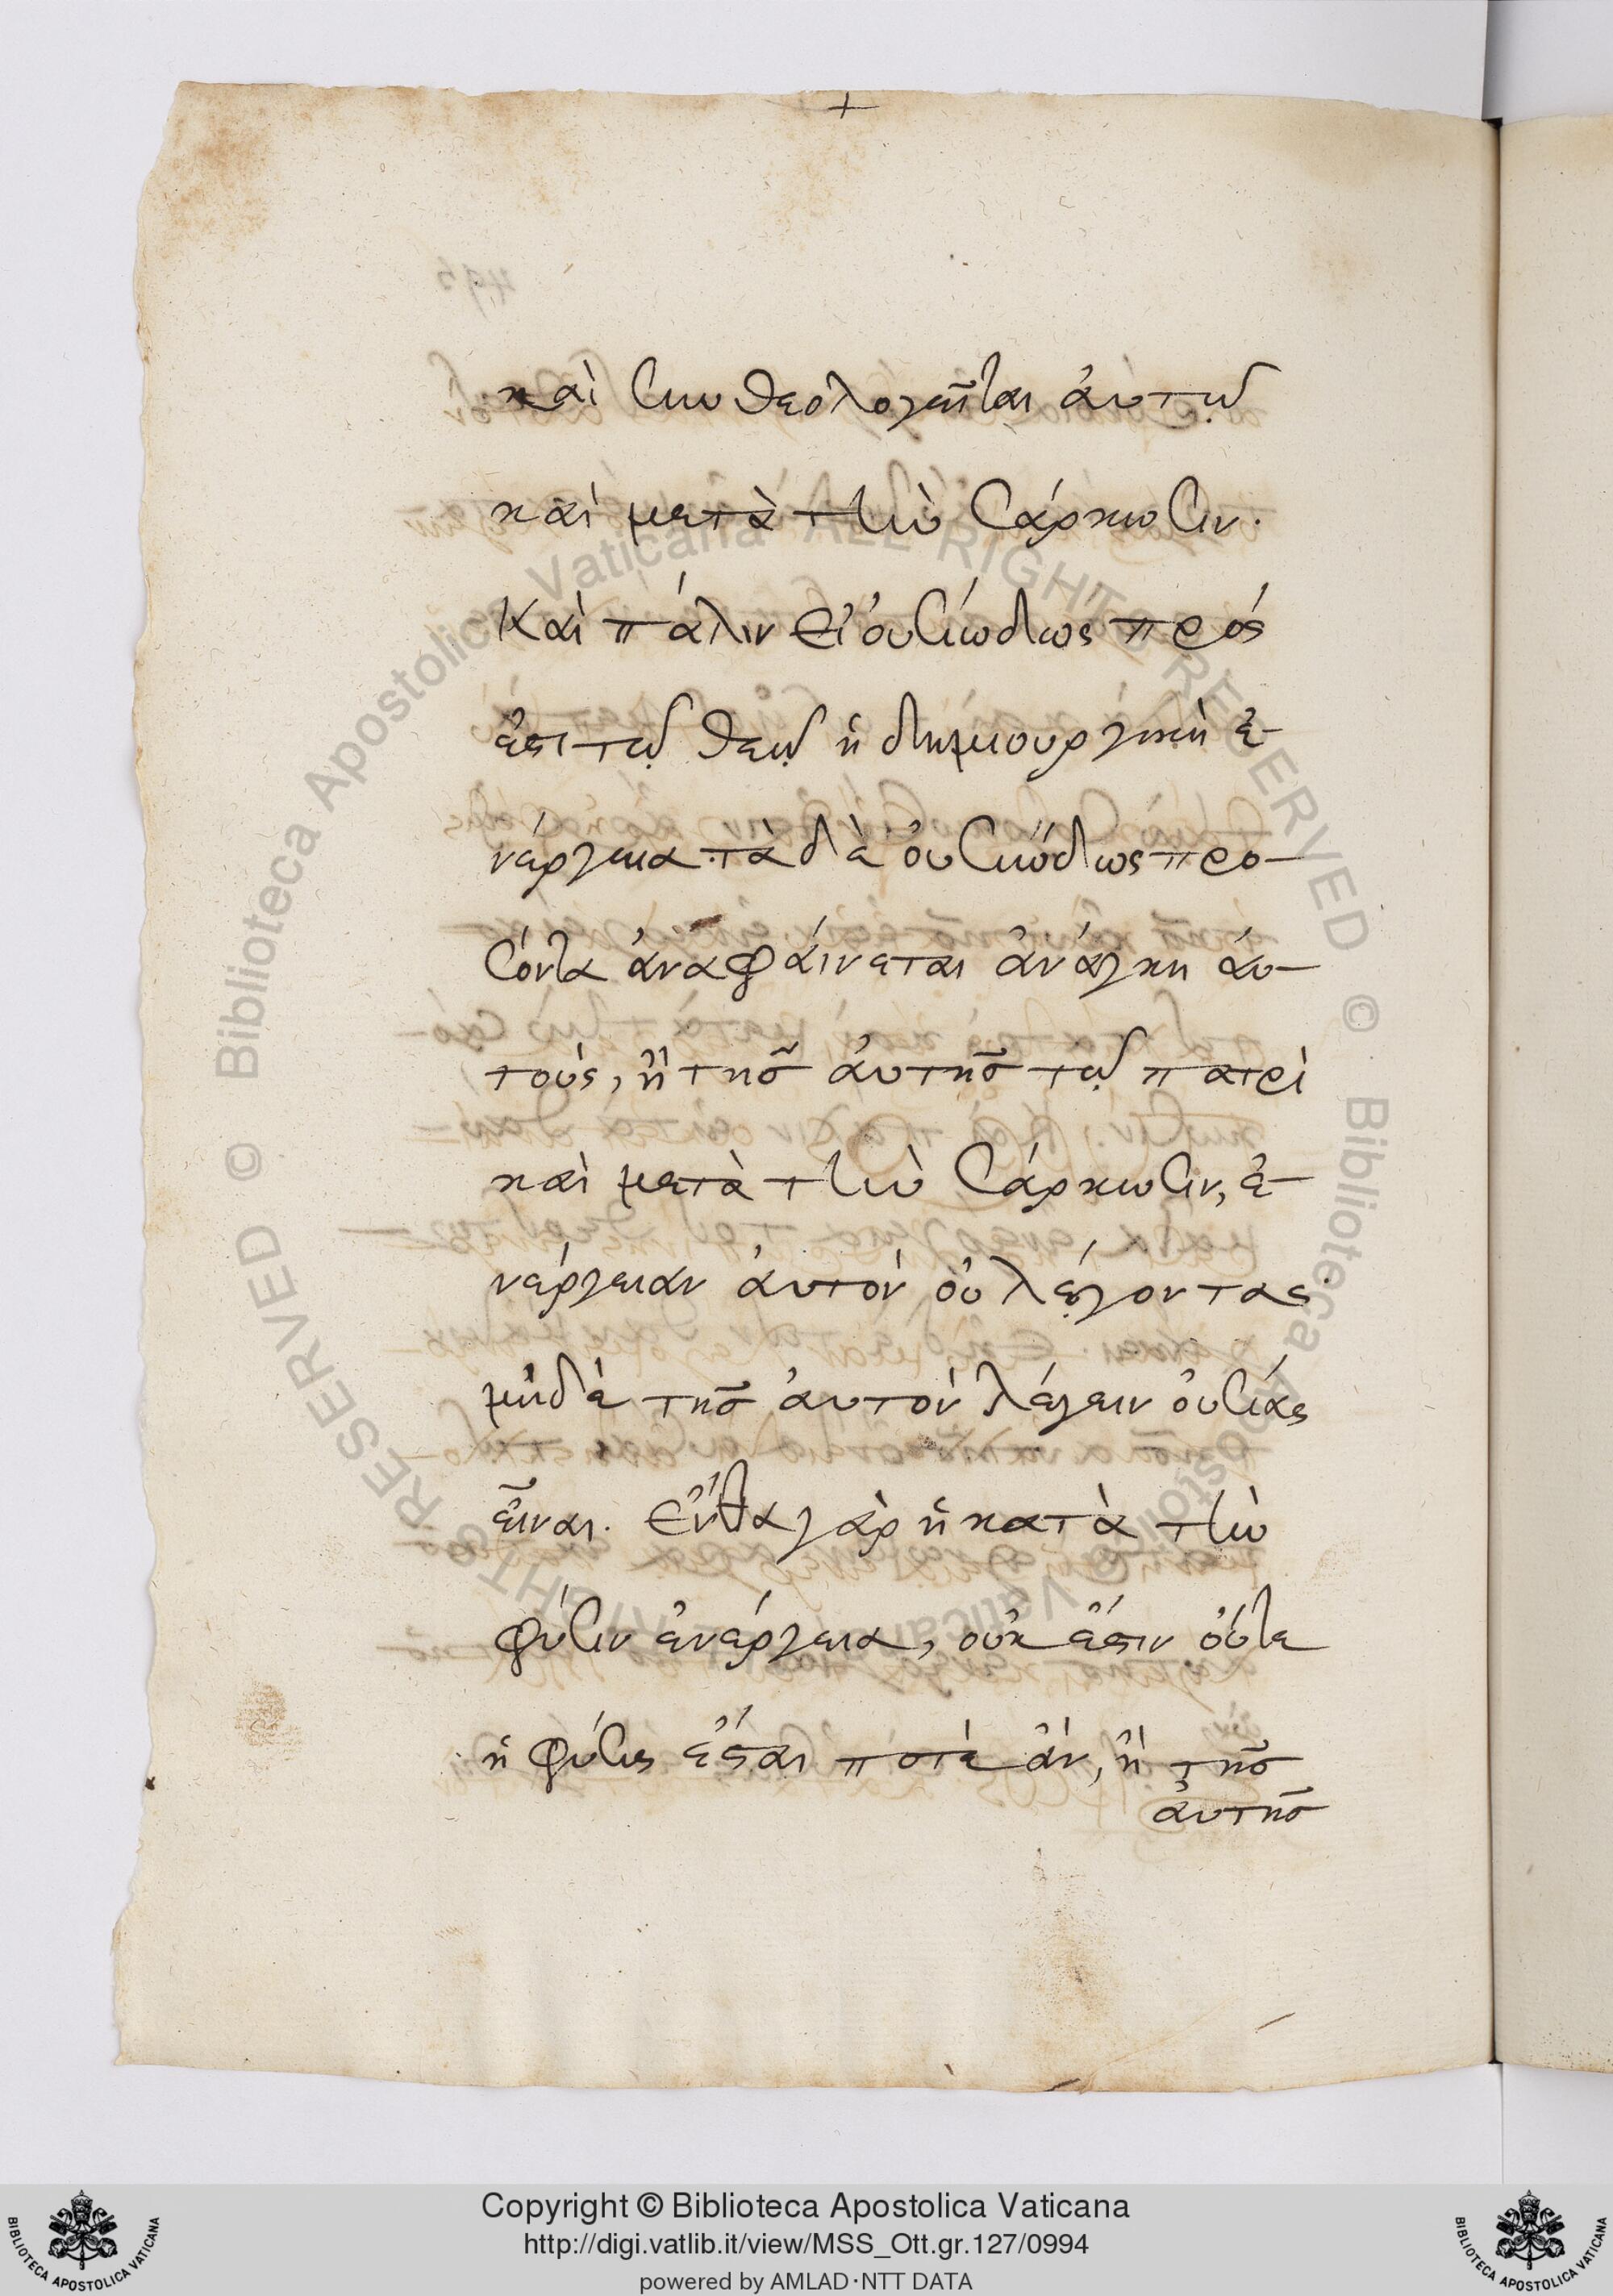 +
καὶ συνθεολογεῖται ἀυτῷ
καὶ μετὰ τὴν σάρκωσιν.
Καὶ πάλιν εἰ ὀυσιωδῶς πρός
ἐστι τῷ θεῷ ἡ δημιουργικὴ ἐ-
νέργεια. τὰ δὲ ὀυσιωδῶς προ-
σόντα ἀναφάινεται ἀνάγκη ἀυ-
τοὺς, ἢ τῆς ἀυτῆς τῷ πατρὶ
καὶ μετὰ τὴν σάρκωσιν, ἐ-
νέργειαν ἀυτὸν ὀυ λέγοντας·
μηδὲ τῆς ἀυτὸν λέγειν ὀυσίας
εἶναι. Ἔνθα γὰρ ἡ κατὰ τὴν
φύσιν ἐνέργεια, ὀυκ ἔστιν ὀύτε
ἡ φύσις ἔσται ποτὲ ἀν, ἢ τῆς
ἀυτῆς
© Biblioteca Apostolica Vaticana ALL RIGHTS RESERVED © Biblioteca Apostolica Vaticana ALL RIGHTS RESERVED
Copyright © Biblioteca Apostolica Vaticana
http://digi.vatlib.it/view/MSS_Ott.gr.127/0994
powered by AMLAD·NTT DATA
BIBLIOTECA APOSTOLICA VATICANA
BIBLIOTECA APOSTOLICA VATICANA